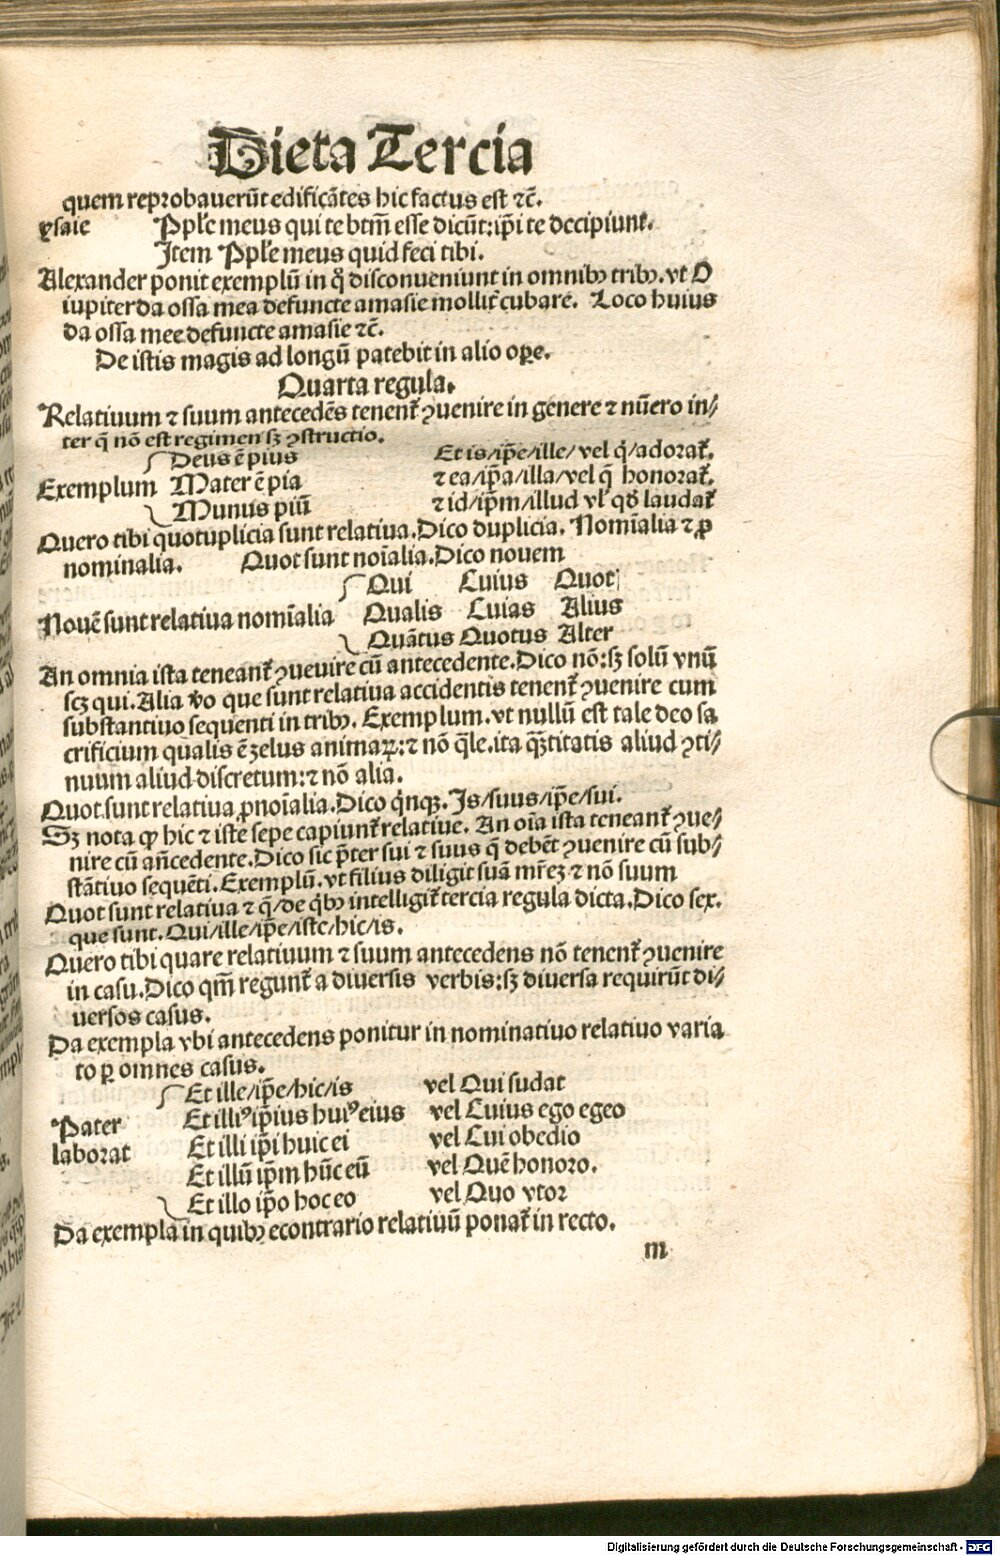 Dieta Tercia
quem reprobauerūt edificātes hic factus est ⁊c̄.
ysaie Pple meus qui te btm̄ esse dicūt: ip̄i te decipiunt.
Item Pple meus quid feci tibi.
Alexander ponit exemplū in q̊ disconueniunt in omnibꝫ tribꝫ. vt O
iupiter da ossa mea defuncte amasie mollit̄ cubare. Loco huius
da ossa mee defuncte amasie ⁊c̄.
De istis magis ad longū patebit in alio oꝑe.
Quarta regula.
Relatiuum ⁊ suum antecedēs tenent̄ ꝯuenire in genere ⁊ nūero in⸗
ter q̄ nō est regimen sꝫ ꝯstructio.
Deus ē pius Et is/ip̄e/ille/ vel q̇/adorat̄.
Exemplum Mater ē pia ⁊ ea/ip̄a/illa/vel q̄ honorat̄.
Munus piū ⁊ id/ip̄m/illud vl' qd̄ laudat̄
Quero tibi quotuplicia sunt relatiua. Dico duplicia. Nomīalia ⁊ ꝓ
nominalia. Quot sunt noīalia. Dico nouem
Qui Cuius Quot
Nouē sunt relatiua nomīalia Qualis Cuias Alius
Quātus Quotus Alter
An omnia ista teneant̄ ꝯueuire cū antecedente. Dico nō: sꝫ solū vnū
scꝫ qui. Alia v̊o que sunt relatiua accidentis tenent̄ ꝯuenire cum
substantiuo sequenti in tribꝫ. Exemplum. vt nullū est tale deo sa
crificium qualis ē zelus animaꝝ: ⁊ nō q̄le. ita q̄titatis aliud ꝯti⸗
nuum aliud discretum: ⁊ nō alia.
Quot sunt relatiua ꝓnoīalia. Dico q̇nqꝫ. Is/suus/ip̄e/sui.
Sꝫ nota ꝙ hic ⁊ iste sepe capiunt̄ relatiue. An oīa ista teneant̄ ꝯue⸗
nire cū an̄cedente. Dico sic p̄ter sui ⁊ suus q̄ debēt ꝯuenire cū sub⸗
stātiuo sequēti. Exemplū. vt filius diligit suā mr̄eꝫ ⁊ nō suum
Quot sunt relatiua ⁊ q̄/de q̇bꝫ intelligit̄ tercia regula dicta. Dico sex.
que sunt. Qui/ille/ip̄e/iste/hic/is.
Quero tibi quare relatiuum ⁊ suum antecedens nō tenent̄ ꝯuenire
in casu. Dico qm̄ regunt̄ a diuersis verbis: sꝫ diuersa requirūt di⸗
uersos casus.
Da exempla vbi antecedens ponitur in nominatiuo relatiuo varia
to ꝑ omnes casus.
Et ille/ip̄e/hic/is vel Qui sudat
Pater Et illiꝰ ip̄ius huiꝰ eius vel Cuius ego egeo
laborat Et illi ip̄i huic ei vel Cui obedio
Et illū ip̄m hūc eū vel Quē honoro.
Et illo ip̄o hoc eo vel Quo vtor
Da exempla in quibꝫ econtrario relatiuū ponat̄ in recto.
m
Digitalisierung gefördert durch die Deutsche Forschungsgemeinschaft - DFG